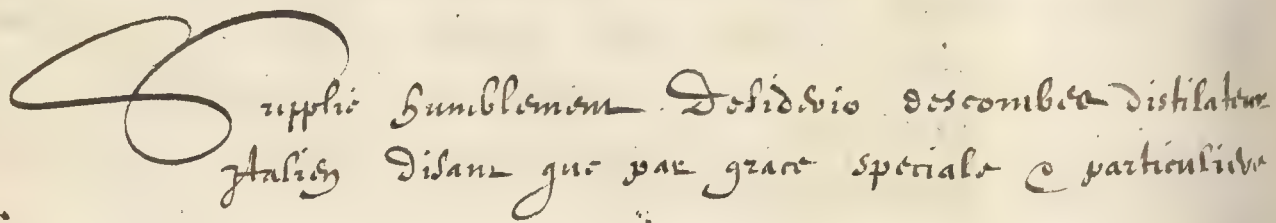 Supplie humblement Desiderio descombes distilateur
Italien disant que par grace speciale & particuliere